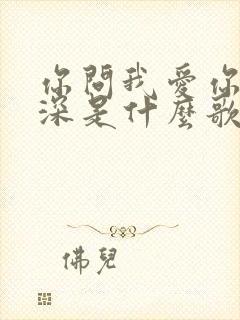 你問我愛你
深是什麼歌
佛兒